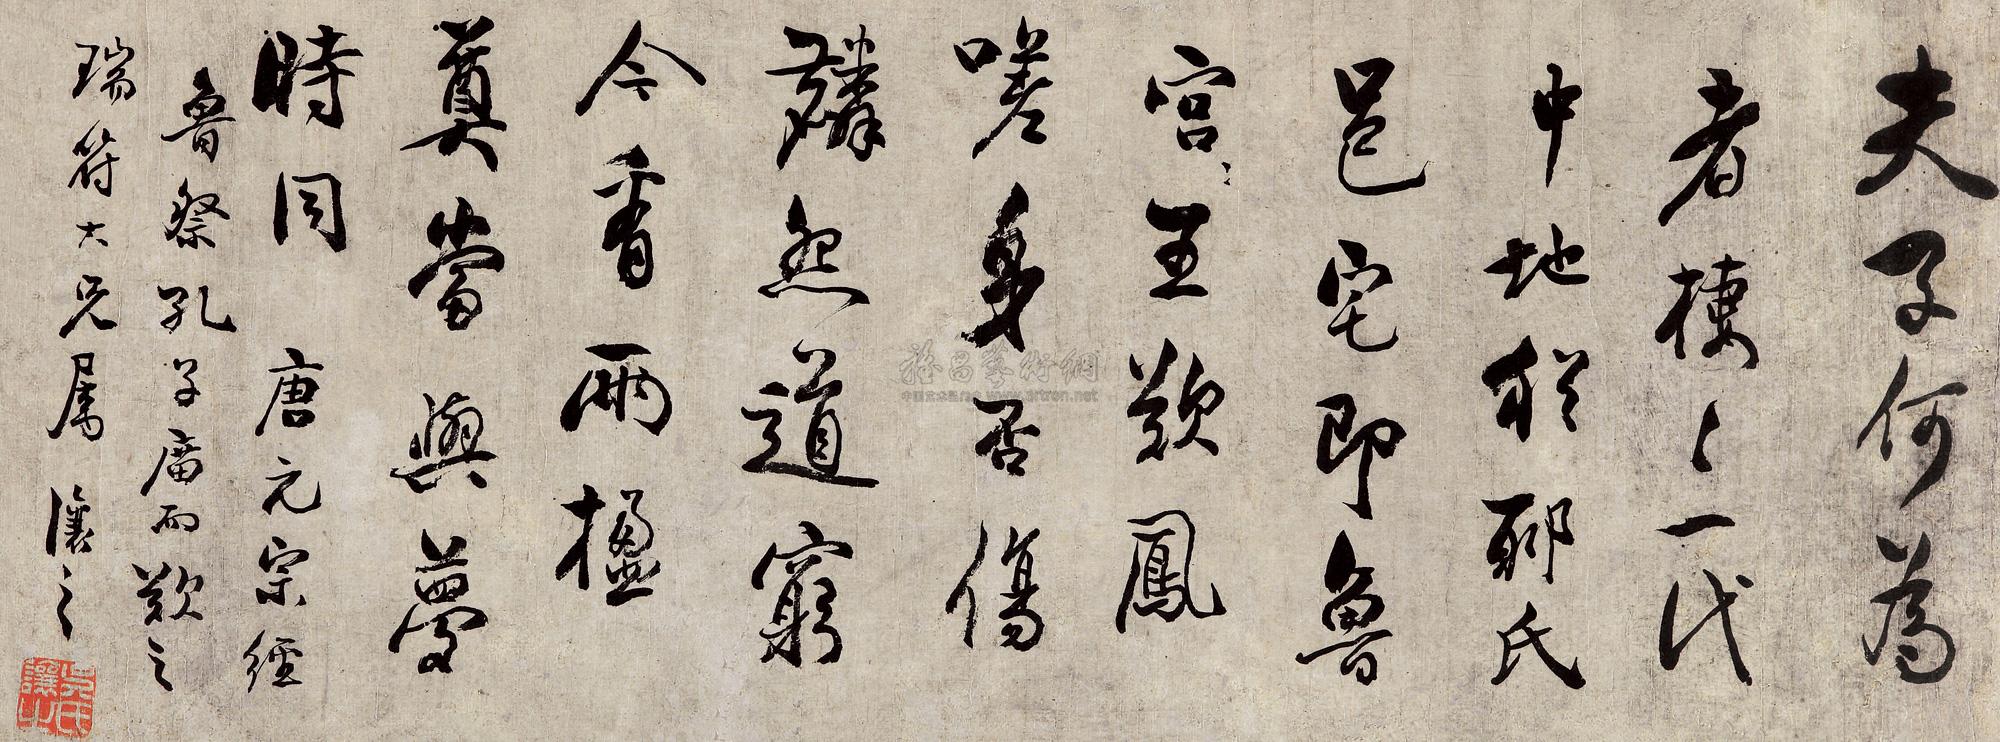 夫子何為
者棲〻一代
中地猶郰氏
邑宅即魯
宮王歎鳳
嗟身否傷
麟怨道窮
今看兩楹
奠當與夢
時同 唐元宗經
魯祭孔子廣而歎之
瑞符大兄屬 讓之
吳氏讓之
雅昌藝術網
www.artron.net